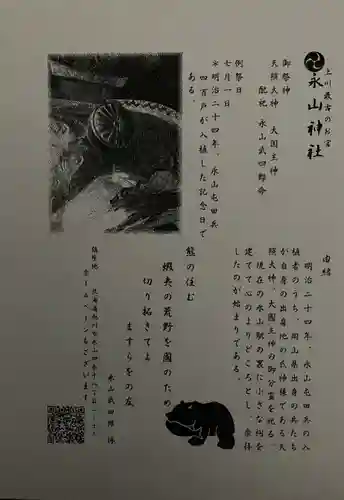 上川最古のお宮
永山神社
御祭神
天照大神 大国主神
配祀 永山武四郎命
例祭日
七月一日
※明治二十四年、永山屯田兵
四百戸が入植した記念日で
ある。
由緒
明治二十四年、永山屯田兵の入
植者のうち、岡山県出身の兵たち
が自身の出身地の氏神様である天
照大神、大国主神の御分霊を祀る
現在の永山駅の裏に小さな祠を
建てて心のよりどころとし、崇拝
したのが始まりである。
熊の住む
蝦夷の荒野を国のため
切り拓きてよ
ますらをの友
永山武四郎 詠
鎮座地 北海道旭川市永山四条十八丁目
ホームページもございます